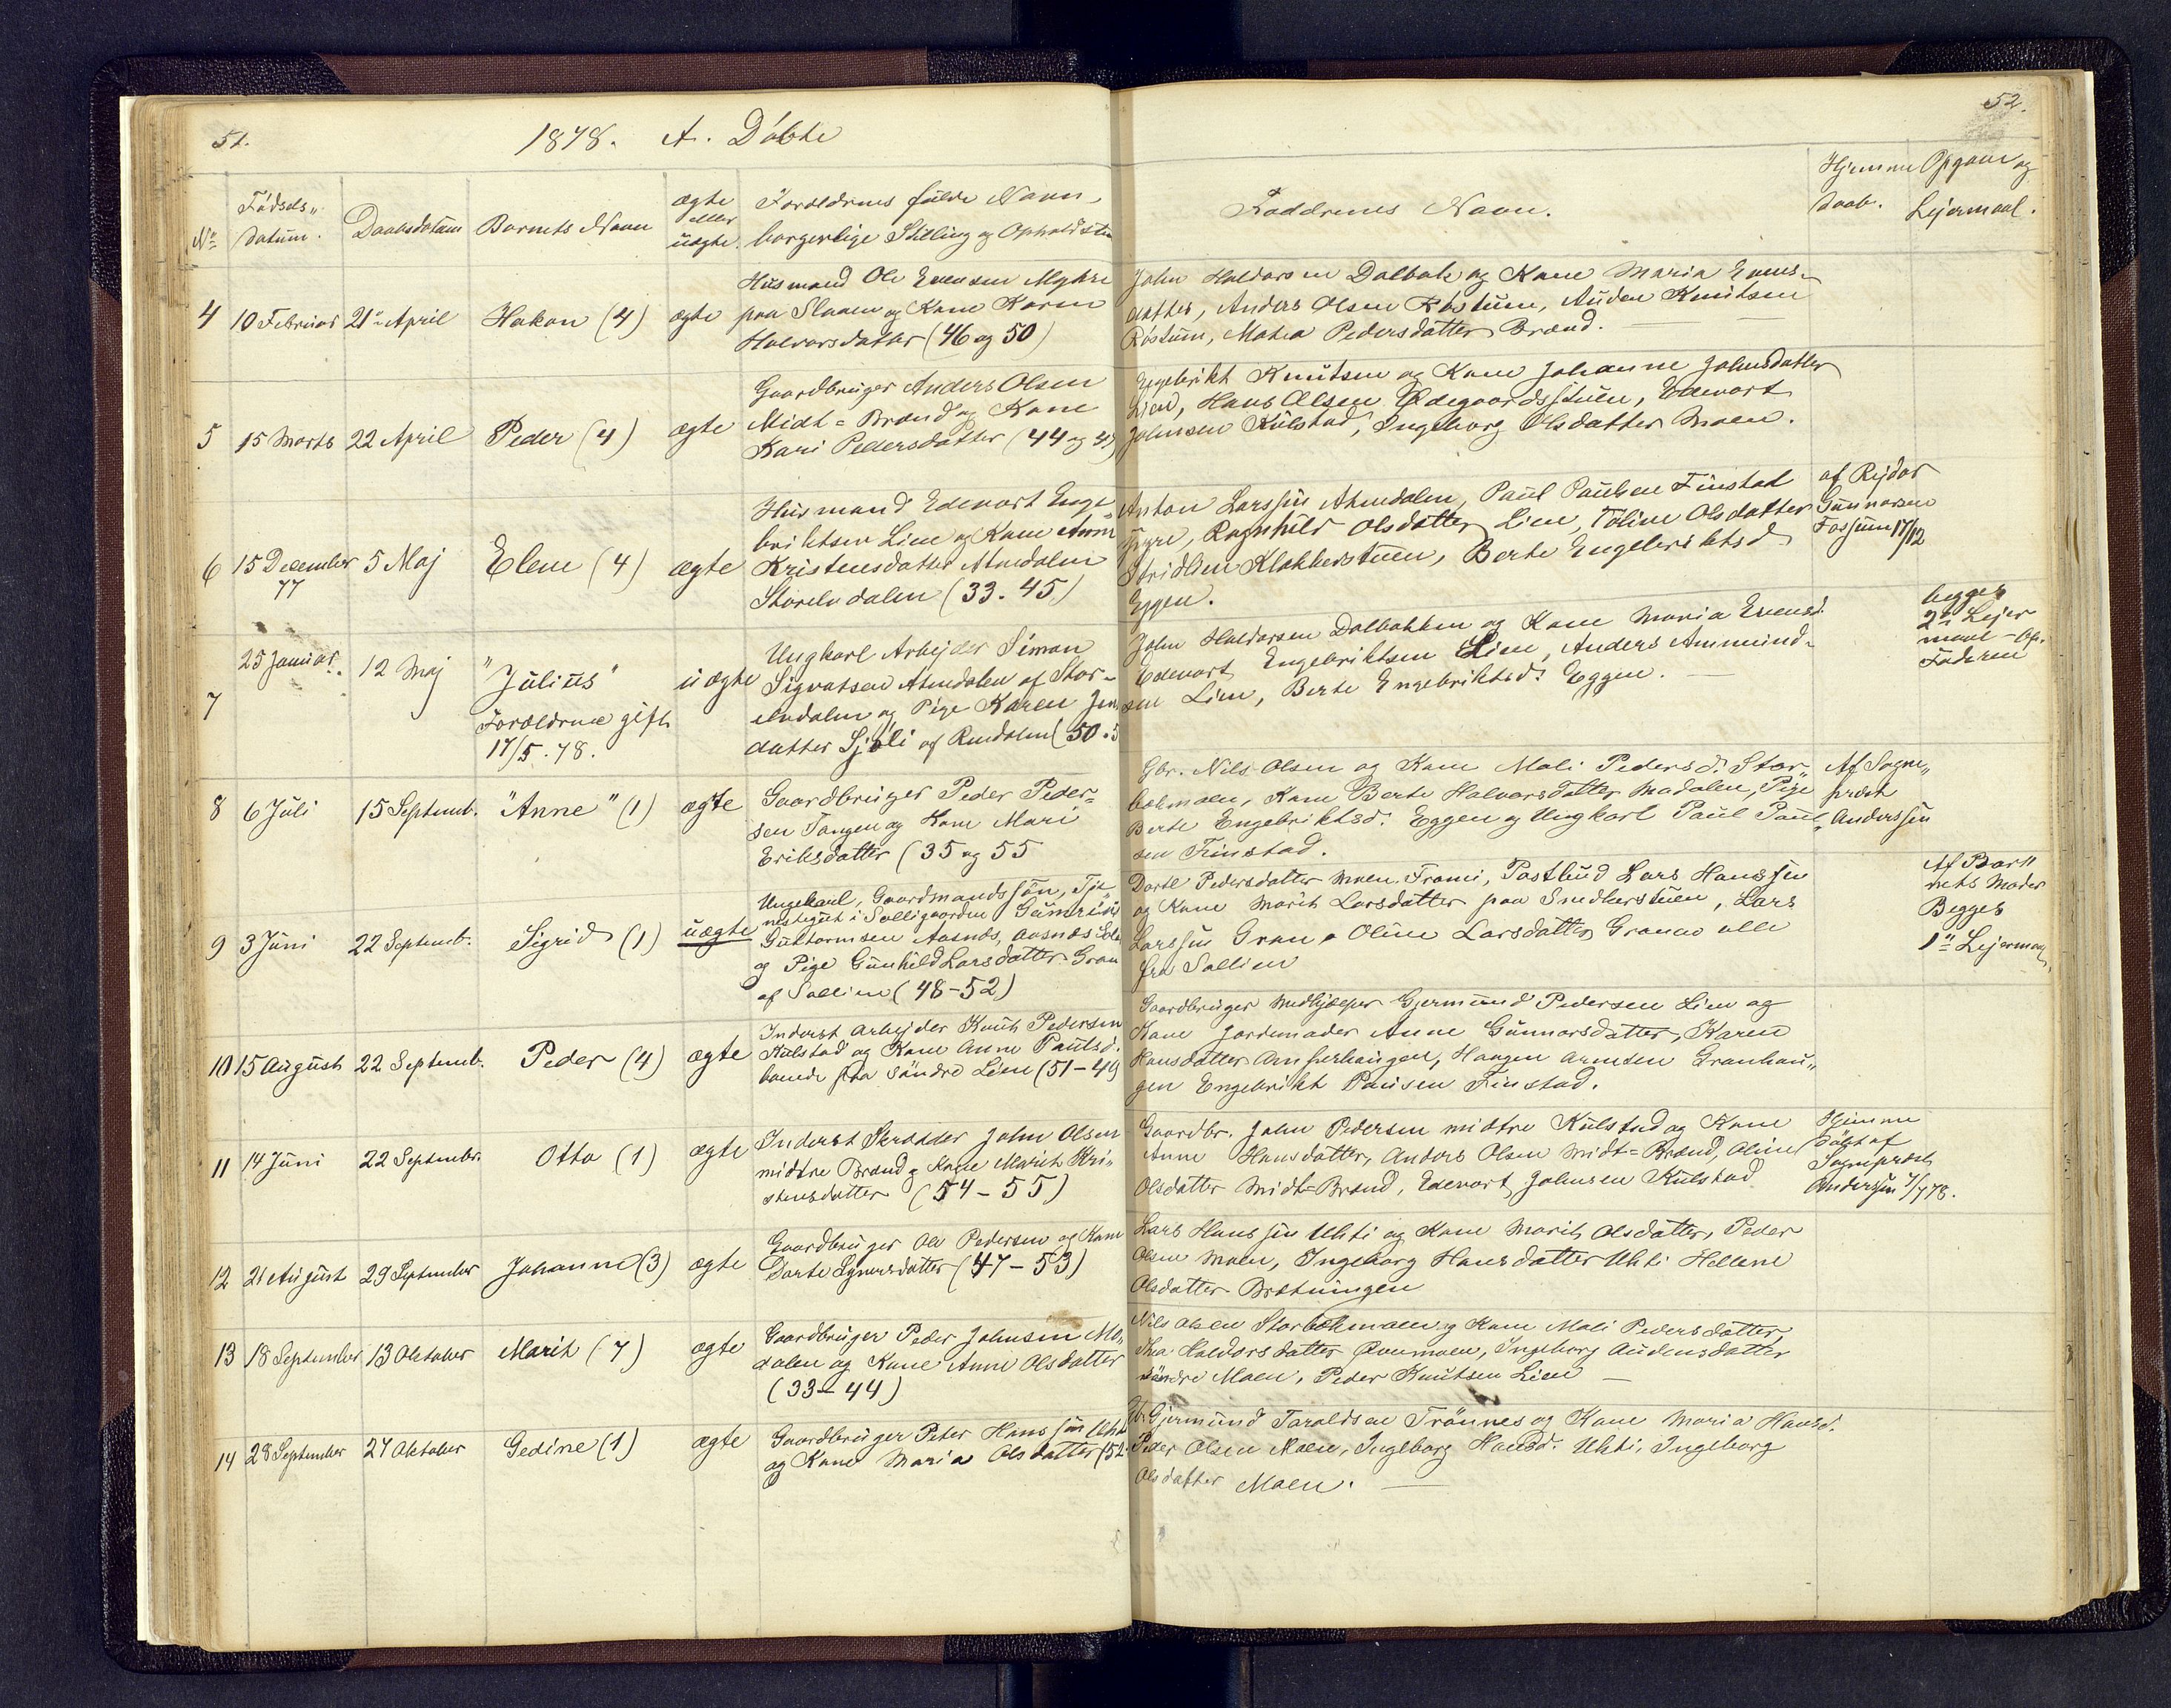 51.
1878. A. Døbte
52.
No
Fødsels-
datum.
Daabsdatum
Barnets Navn
ægte
eller
uægte.
Forældrenes fulde Navn,
borgerlige Stilling og Opholdsted
Faddrenes Navn.
Hjemme
daab.
Opgaver og
Lejermaal.
4
10 Februar
21de April
Hakon (4)
ægte
Husmand Ole Evensen Myhre
paa Slaaen og Kone Karen
Halvorsdatter (46 og 50)
John Haldorsen Dalbak og Kone Maria Evens-
datter, Anders Olsen Røstum, Auden Knutsen
Røstum, Mathea Pedersdatter Brænd.
5
15 Marts
22 April
Peder (4)
ægte
Gaardbruger Anders Olsen
Midt-Brænd og Kone
Kari Pedersdatter (44 og 4
Engebrikt Knutsen og Kone Johanne Johnsdatter
Lien, Hans Olsen Ødegaardsstuen, Edevart
Johnsen Kulstad, Ingeborg Olsdatter Moen.
6
15 December
77
5 Maj
Elene (4)
ægte
Husmand Edevart Enge-
briktsen Lien og Kone Anne
Kristensdatter Atnedalen
Storelvdalen (33. 45)
Anton Larssen Atnedalen, Paul Paulsen Finstad
Ragnhild Olsdatter Lien, Oline Olsdatter
Klokkerstuen, Berte Engebriktsd
Eggen.
af Rejdar
Gunnarsen
Fossum 17/12
7
25 Januar.
12 Maj
"Julius"
Forældrene gift
17/5. 78.
uægte
Ungkarl Arbejder Simon
Sigvatsen Atnedalen af Stor-
elvdalen og Pige Karen Jens
datter Sjøli af Rendalen (50. 5
John Haldorsen Dalbakken og Kone Maria Evensd.
Edevart Engebriktsen Lien, Anders Ammund-
sen Lien, Berte Engebriktsd. Eggen.
begges
2det Lejer
maal - Op.
Faderen
8
6 Juli
15 Septemb.
"Anne" (1)
ægte
Gaardbruger Peder Peder-
sen Tangen og Kone Mari
Eriksdatter (35 og 55
Gbr. Nils Olsen og Kone Mali Pedersd. Stor-
bekmoen, Kone Berte Halvorsdatter Modalen, Pige
Berte Engebriktsd. Eggen og Ungkarl Paul Paul-
sen Finstad.
Af Sogne-
præst
Anderssen
9
3 Juni
22 Septemb.
Sigrid (1)
uægte
Ungekarl, Gaardmandssøn, Tje-
nestegut i Solligaarden Gunerius
Guttormsen Aasnæs, Aasnæs Sol
og Pige Gunhild Larsdatter Gran
af Sollien (48-52)
Dorte Pedersdatter Moen Froni, Postbud Lars Hanssen
og Kone Marit Larsdatter paa Snedkerstuen, Lars
Larssen Gran, Oline Larsdatter Gran alle
fra Sollien
Af Bar-
nets Moder
Begges
1ste Lejermaal
10
15 August
22 Septemb.
Peder (4)
ægte
Inderst Arbejder Knut Pedersen
Kulstad og Kone Anne Paulsd.
boende paa Søndre Lien (51-49
Gaardbruger Medhjælper Gjermund Pedersen Lien og
Kone Jordemoder Anne Gunnarsdatter, Karen
Hansdatter Haugen Arnesen Granhau-
gen Engebrikt Paulsen Finstad.
11
14 Juni
22 Septembr.
Otto (1)
ægte
Inderst Skrædder John Olsen
midtre Brænd og Kone Marit Kri-
stensdatter (54-55)
Gaardbr. John Pedersen midtre Kulstad og Kone
Anne Hansdatter, Anders Olsen Midt-Brænd, Oline
Olsdatter Midt-Brænd, Edevart Johnsen Kulstad
Hjemme
døbt af
Sognepræst
Anderssen 7/7 78.
12
21 August
29 September
Johanne (3)
ægte
Gaardbruger Ole Pedersen og Kone
Dorte Synersdatter (47-53)
Lars Hanssen Uhti og Kone Marit Olsdatter, Peder
Olsen Moen, Ingeborg Hansdatter Uhti Hellene
Olsdatter Bræninngen
13
18 September
13 Oktober
Marit (7)
ægte
Gaardbruger Peder Johnsen Mo-
dalen og Kone Anne Olsdatter
(33-44)
Nils Olsen Storbekmoen og Kone Mali Pedersdatter,
Haldorsdatter Øvremoen, Ingeborg Audensdatter
søndre Moen, Peder Knutsen Lien
14
28 September
27 Oktober
Gedine (1)
ægte
Gaardbruger Peter Hanssen Uhti
og Kone Maria Olsdatter (52-
Gb. Gjermund Taraldsen Trønnes og Kone Maria Hansd.
Peder Olsen Moen, Ingeborg Hansd. Uhti, Ingeborg
Olsdatter Moen.